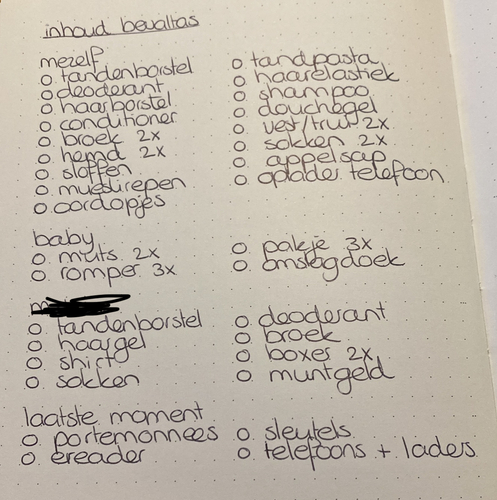 inhoud bevaltas
mezelf
o tandenborstel
o deoderant
o haarborstel
o conditioner
o broek 2x
o hemd 2x
o sloffen
o mueslirepen
o oordopjes
o tandpasta
o haarelastiek
o shampoo
o douchegel
o vest/trui 2x
o sokken 2x
o appelsap
o oplader telefoon
baby
o muts 2x
o romper 3x
o pakje 3x
o omslagdoek
o tandenborstel
o haargel
o shirt
o sokken
o deoderant
o broek
o boxes 2x
o muntgeld
laatste moment
o portemonnees
o ereader
o sleutels
o telefoons + laders